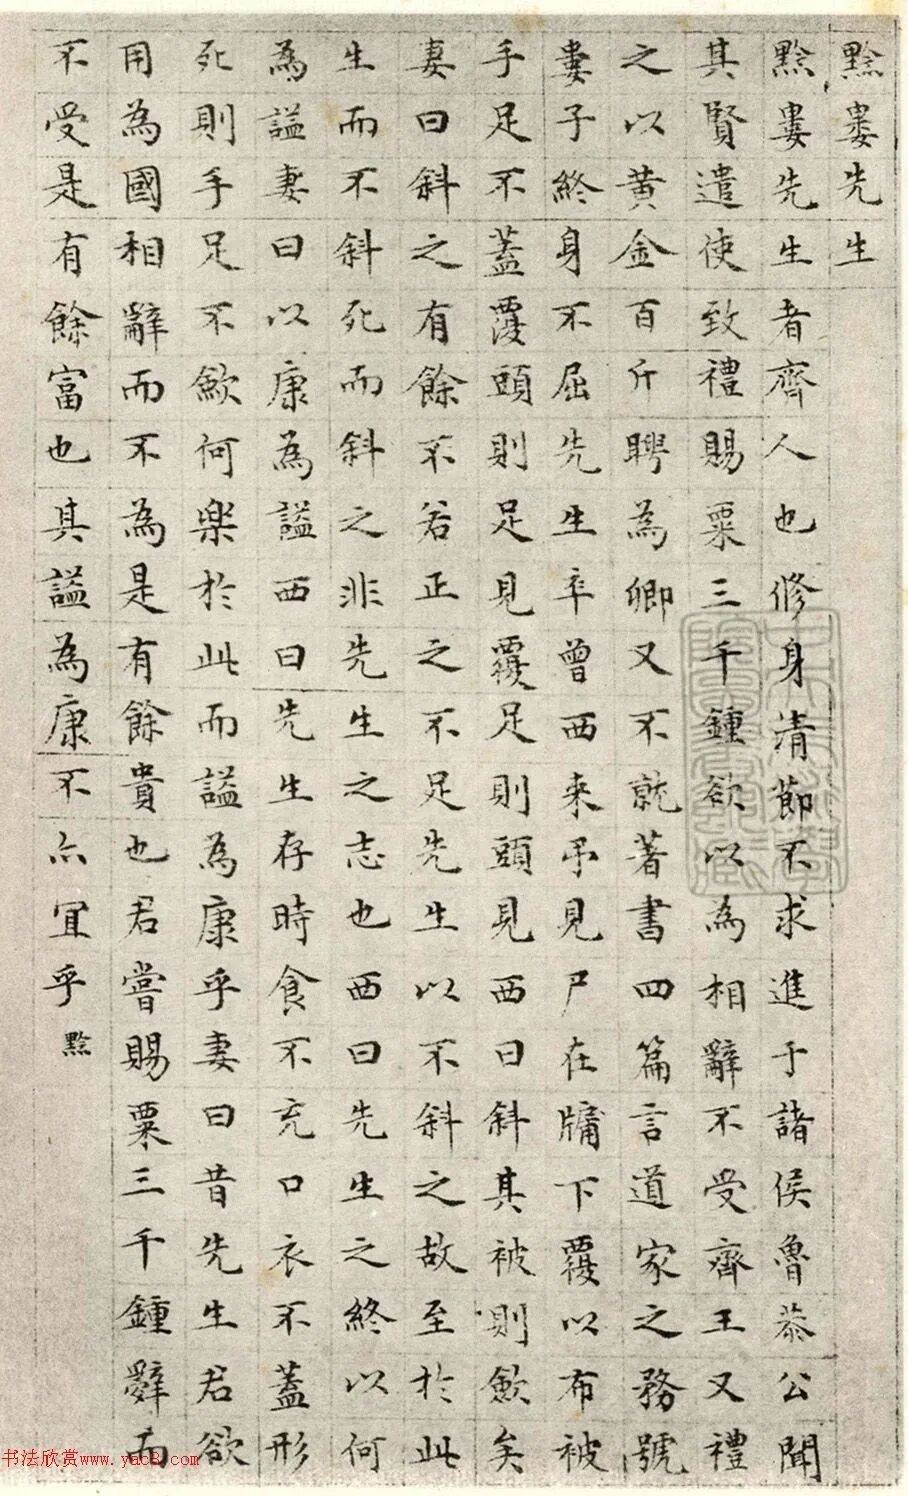 黔婁先生
黔婁先生者齊人也修身清節不求進于諸侯魯恭公聞
其賢遣使致禮賜粟三千鍾欲以為相辭不受齊王又禮
之以黃金百斤聘為卿又不就著書四篇言道家之務號
婁子終身不屈先生卒曾西来弔見尸在牖下覆以布被
手足不蓋覆頭則足見覆足則頭見西曰斜其被則歛矣
妻曰斜之有餘不若正之不足先生以不斜之故至於此
生而不斜死而斜之非先生之志也西曰先生之終以何
為諡妻曰以康為諡西曰先生存時食不充口衣不蓋形
死則手足不歛何樂於此而諡為康乎妻曰昔先生君欲
用為國相辭而不為是有餘貴也君嘗賜粟三千鍾辭而
不受是有餘富也其諡為康不亦宜乎 黔
书法欣赏www.yac8.com